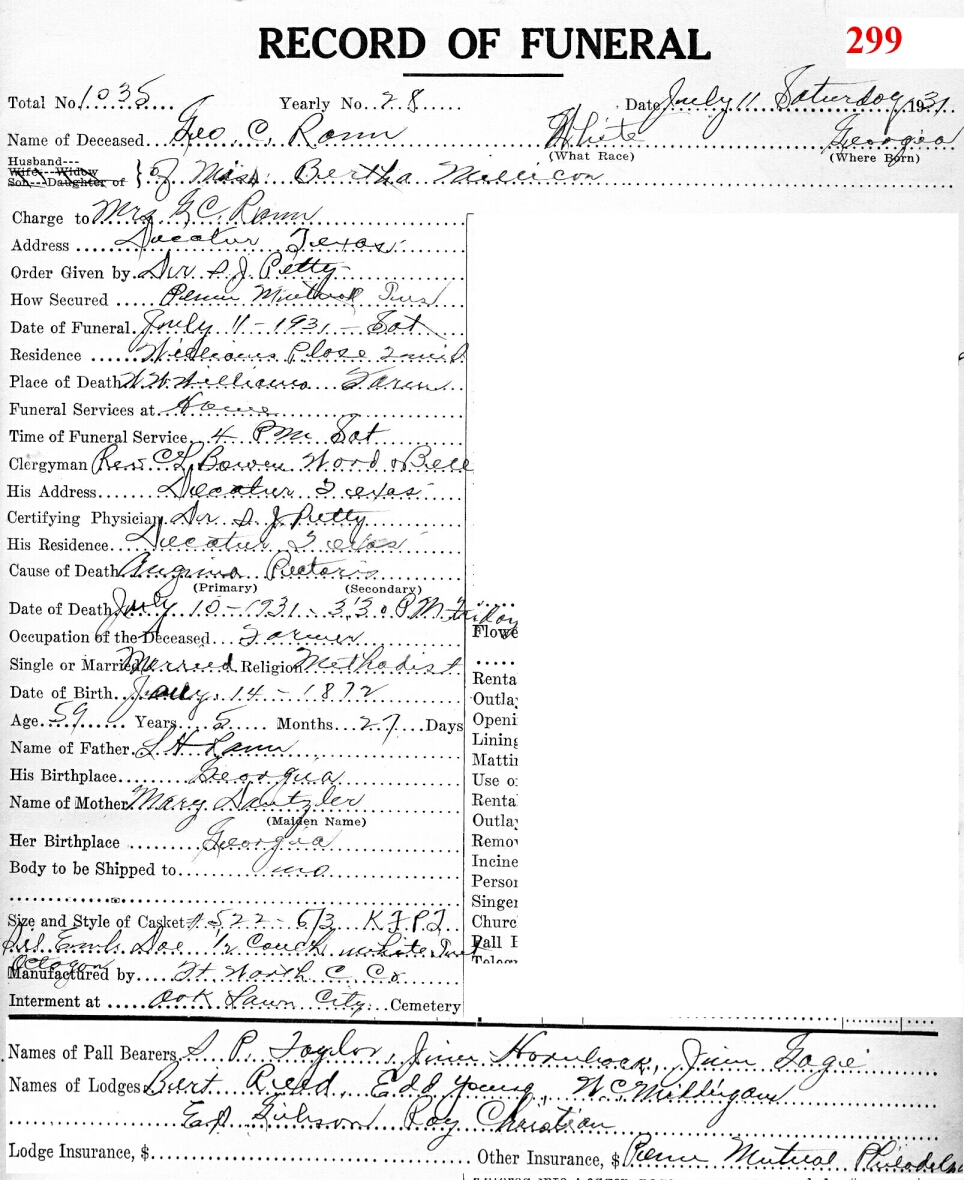 RECORD OF FUNERAL
299
Total No. 1035 Yearly No. 28 Date July 11 Saturday 1931
Name of Deceased Geo. C. Rann White Georgia
(What Race) (Where Born)
Husband---
Wife---Widow
Son---Daughter of } of Miss Bertha Millican
Charge to Mrs G C. Rann
Address Decatur Texas
Order Given by Dr. S. J. Petty
How Secured Penn Mutual Ins
Date of Funeral July 11 - 1931 - Sat
Residence Williams Place
Place of Death Williams Farm
Funeral Services at Home
Time of Funeral Service 4 PM Sat
Clergyman Rev. C L Bowen Word & Bell
His Address Decatur Texas
Certifying Physician Dr. S. J. Petty
His Residence Decatur Texas
Cause of Death Angina Pectoris
(Primary) (Secondary)
Date of Death July 10 - 1931 - 3:30 P.M. Friday
Flowe
Occupation of the Deceased Farmer
Single or Married Married Religion Methodist
Renta
Date of Birth 14 - 1872
Outlay
Age 59 Years 5 Months 27 Days
Openi
Lining
Name of Father L H Rann
Mattin
His Birthplace Georgia
Use o
Name of Mother Mary Dantzler
Renta
(Maiden Name)
Outlay
Her Birthplace Georgia
Remov
Incine
Body to be Shipped to no
Person
Singer
Size and Style of Casket # 522 - 6/3 K.F.P.T.
Churc
Doe 1/2 Couch white
Pall
Octagon
Manufactured by Ft Worth C. Co
Interment at Oak Lawn City Cemetery
Names of Pall Bearers S. P. Taylor, Hornback, Jim Gage
Names of Lodges Bert Reed, Edd Young, W C Milligan
Ed Gibson Roy Christian
Lodge Insurance, $ Other Insurance, $ Penn Mutual Philadelp